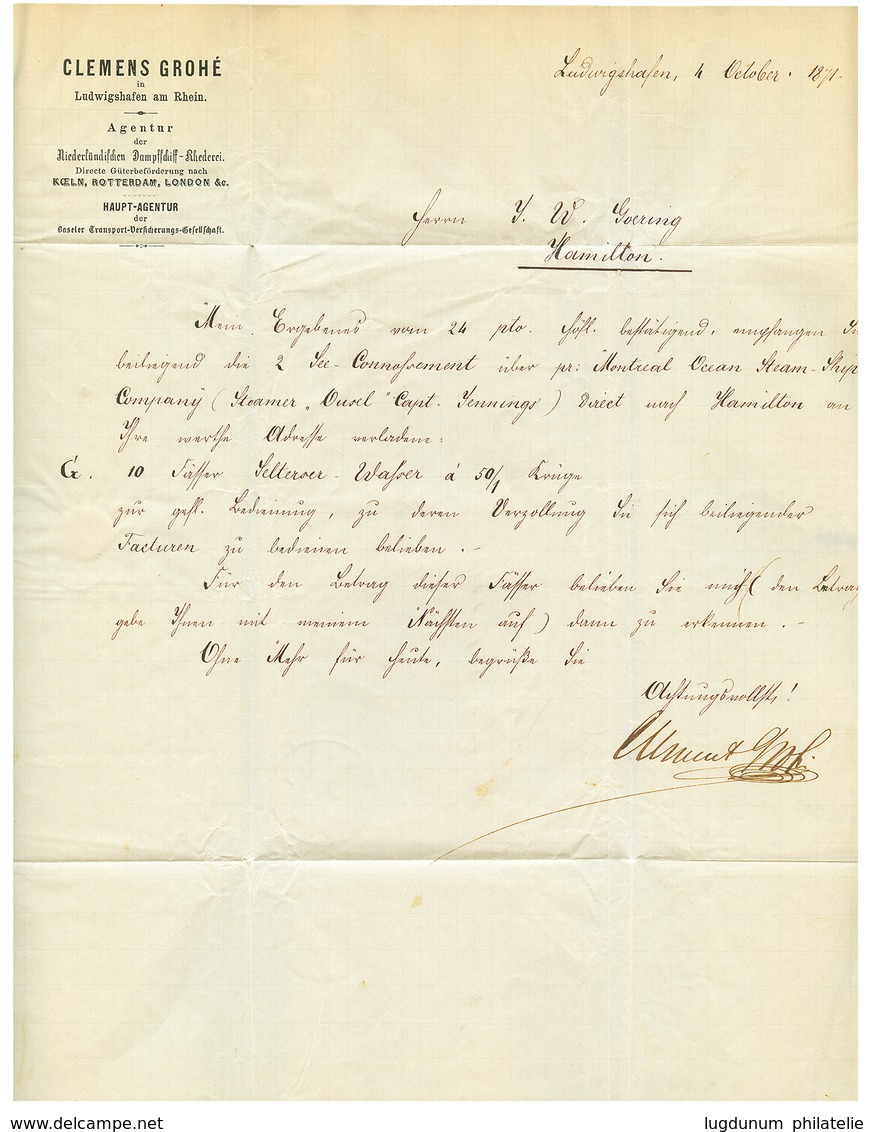 CLEMENS GROHÉ
in
Ludwigshafen am Rhein.
Agentur
der
Niederländischen Dampfschiff-Rhederei.
Directe Güterbeförderung nach
KŒLN, ROTTERDAM, LONDON &c.
HAUPT-AGENTUR
der
Baseler Transport-Versicherungs-Gesellschaft.
Ludwigshafen, 4 October. 1871.
Herrn J. W. Goering
Hamilton.
Mein Ergebenes vom 24 pto. höfl. bestätigend, empfangen
beiliegend die 2 See-Connossement über pr: Montreal Ocean Steam-Ship
Company (Steamer „Ousel" Capt. Jennings) Direct nach Hamilton an
Ihre werthe Adresse verladene:
G. 10 Fässer Selterser-Wasser á 50/1 Krüge
zur gefl. Bedienung, zu deren Verzollung Sie sich beiliegender
Facturen zu bedienen belieben.-
Für den Betrag dieser Fässer belieben Sie mich (den Betrag
gebe Ihnen mit meinem Nächsten auf) dann zu erkennen.-
Ohne Mehr für heute, begrüße Sie
Achtungsvollst!
Clemens Grohé
www.delcampe.net
lugdunum philatelie